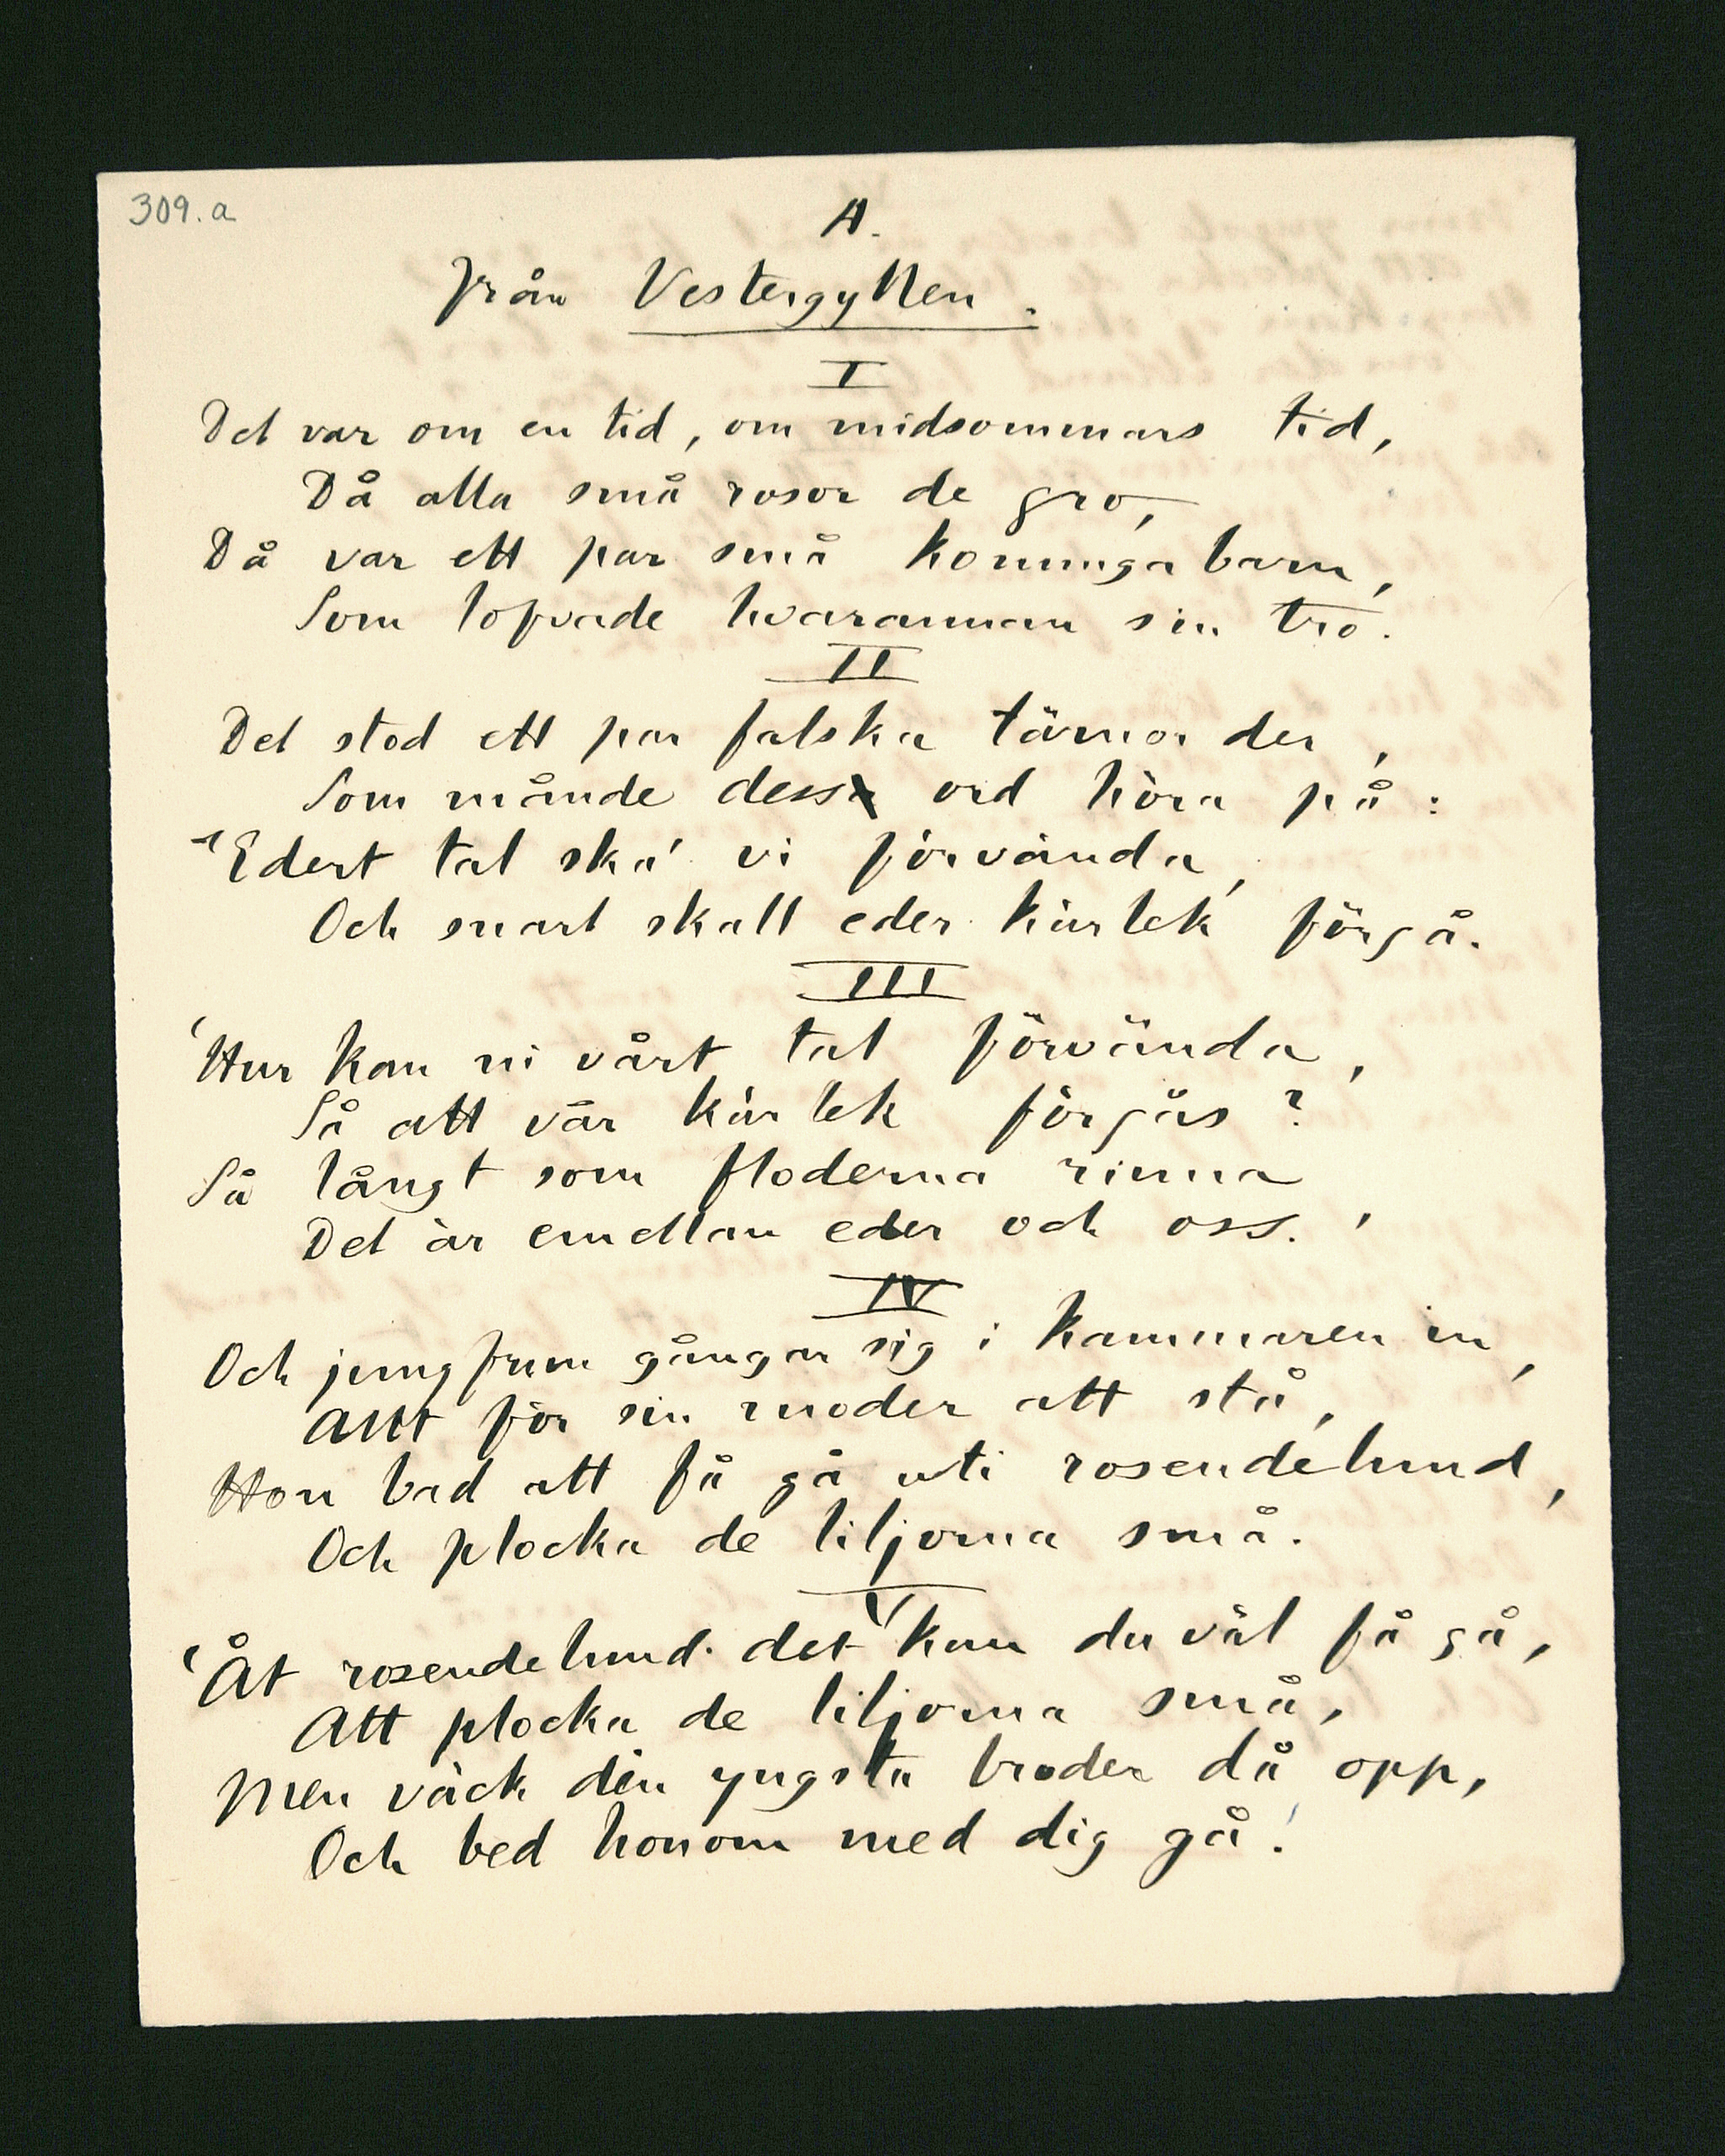 309.a
A.
från Vestergyllen.
I
Det var om en tid, om midsommars tid,
Då alla små rosor de gro,
Då var ett par små konungabarn,
Som lofvade hvarannan sin tro.
II
Det stod ett par falska tärnor der,
Som månde dess ord höra på:
"Edert tal ska' vi förvända,
Och snart skall eder kärlek förgå.
III
'Hur kan ni vårt tal förvända,
Så att vår kärlek förgås?
Så långt som floderna rinna
Det är emellan eder och oss.'
IV
Och jungfrun gångar sig i kammaren in,
Allt för sin moder att stå,
Hon bad att få gå uti rosendelund,
Och plocka de liljorna små.
V
'Åt rosendelund det kan du väl få gå,
Att plocka de liljorna små,
Men väck din yngsta broder då opp,
Och bed honom med dig gå!'